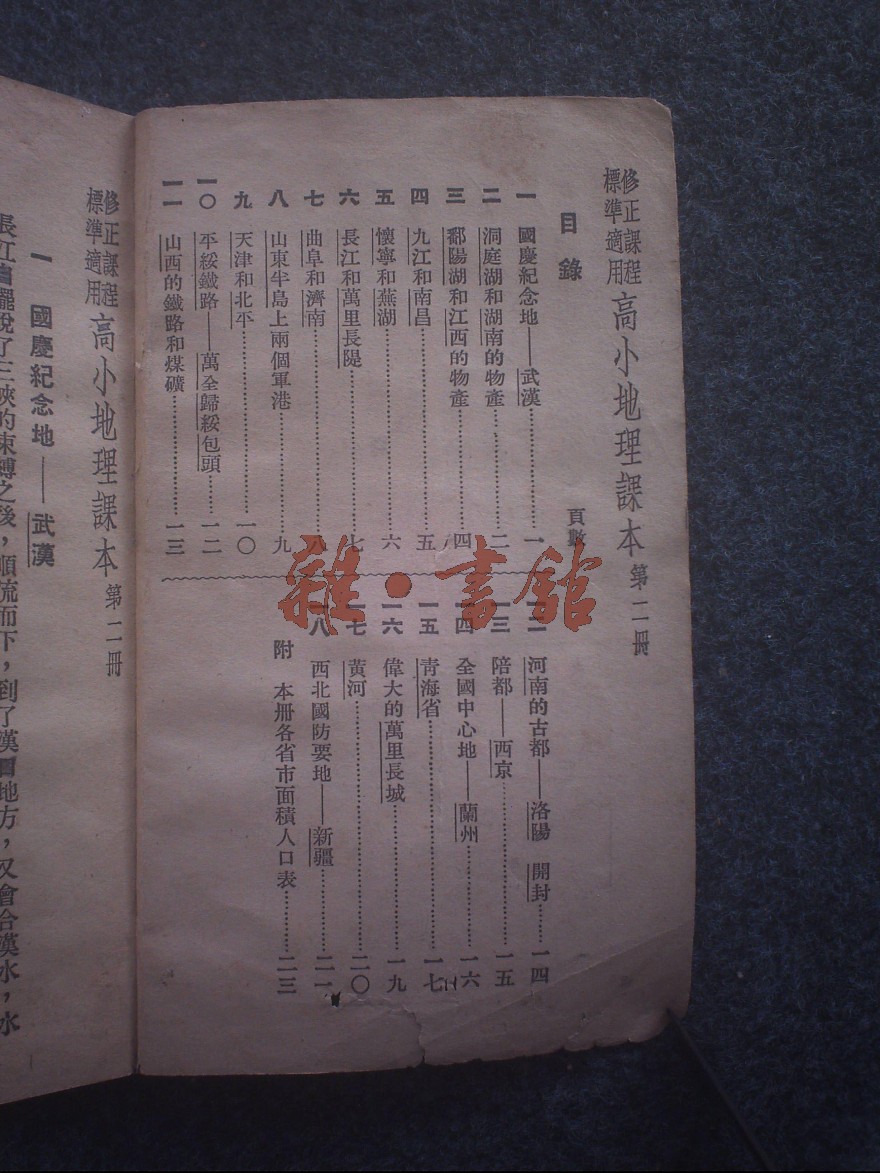 修正課程標準適用 高小地理課本 第二冊
目錄 頁數
一 國慶紀念地——武漢 一
二 洞庭湖和湖南的物產 二
三 鄱陽湖和江西的物產 四
四 九江和南昌 五
五 懷寧和蕪湖 六
六 長江和萬里長隄 七
七 曲阜和濟南 八
八 山東半島上兩個軍港 九
九 天津和北平 一〇
一〇 平綏鐵路——萬全歸綏包頭 一二
一一 山西的鐵路和煤礦 一三
一二 河南的古都——洛陽 開封 一四
一三 陪都——西京 一五
一四 全國中心地——蘭州 一六
一五 青海省 一七
一六 偉大的萬里長城 一九
一七 黃河 二〇
一八 西北國防要地——新疆 二一
附 本冊各省市面積人口表 二三
雜·書館
修正課程標準適用 高小地理課本 第二冊
一 國慶紀念地——武漢
長江擺脫了三峽的束縛之後，順流而下，到了漢口地方，又會合漢水，水